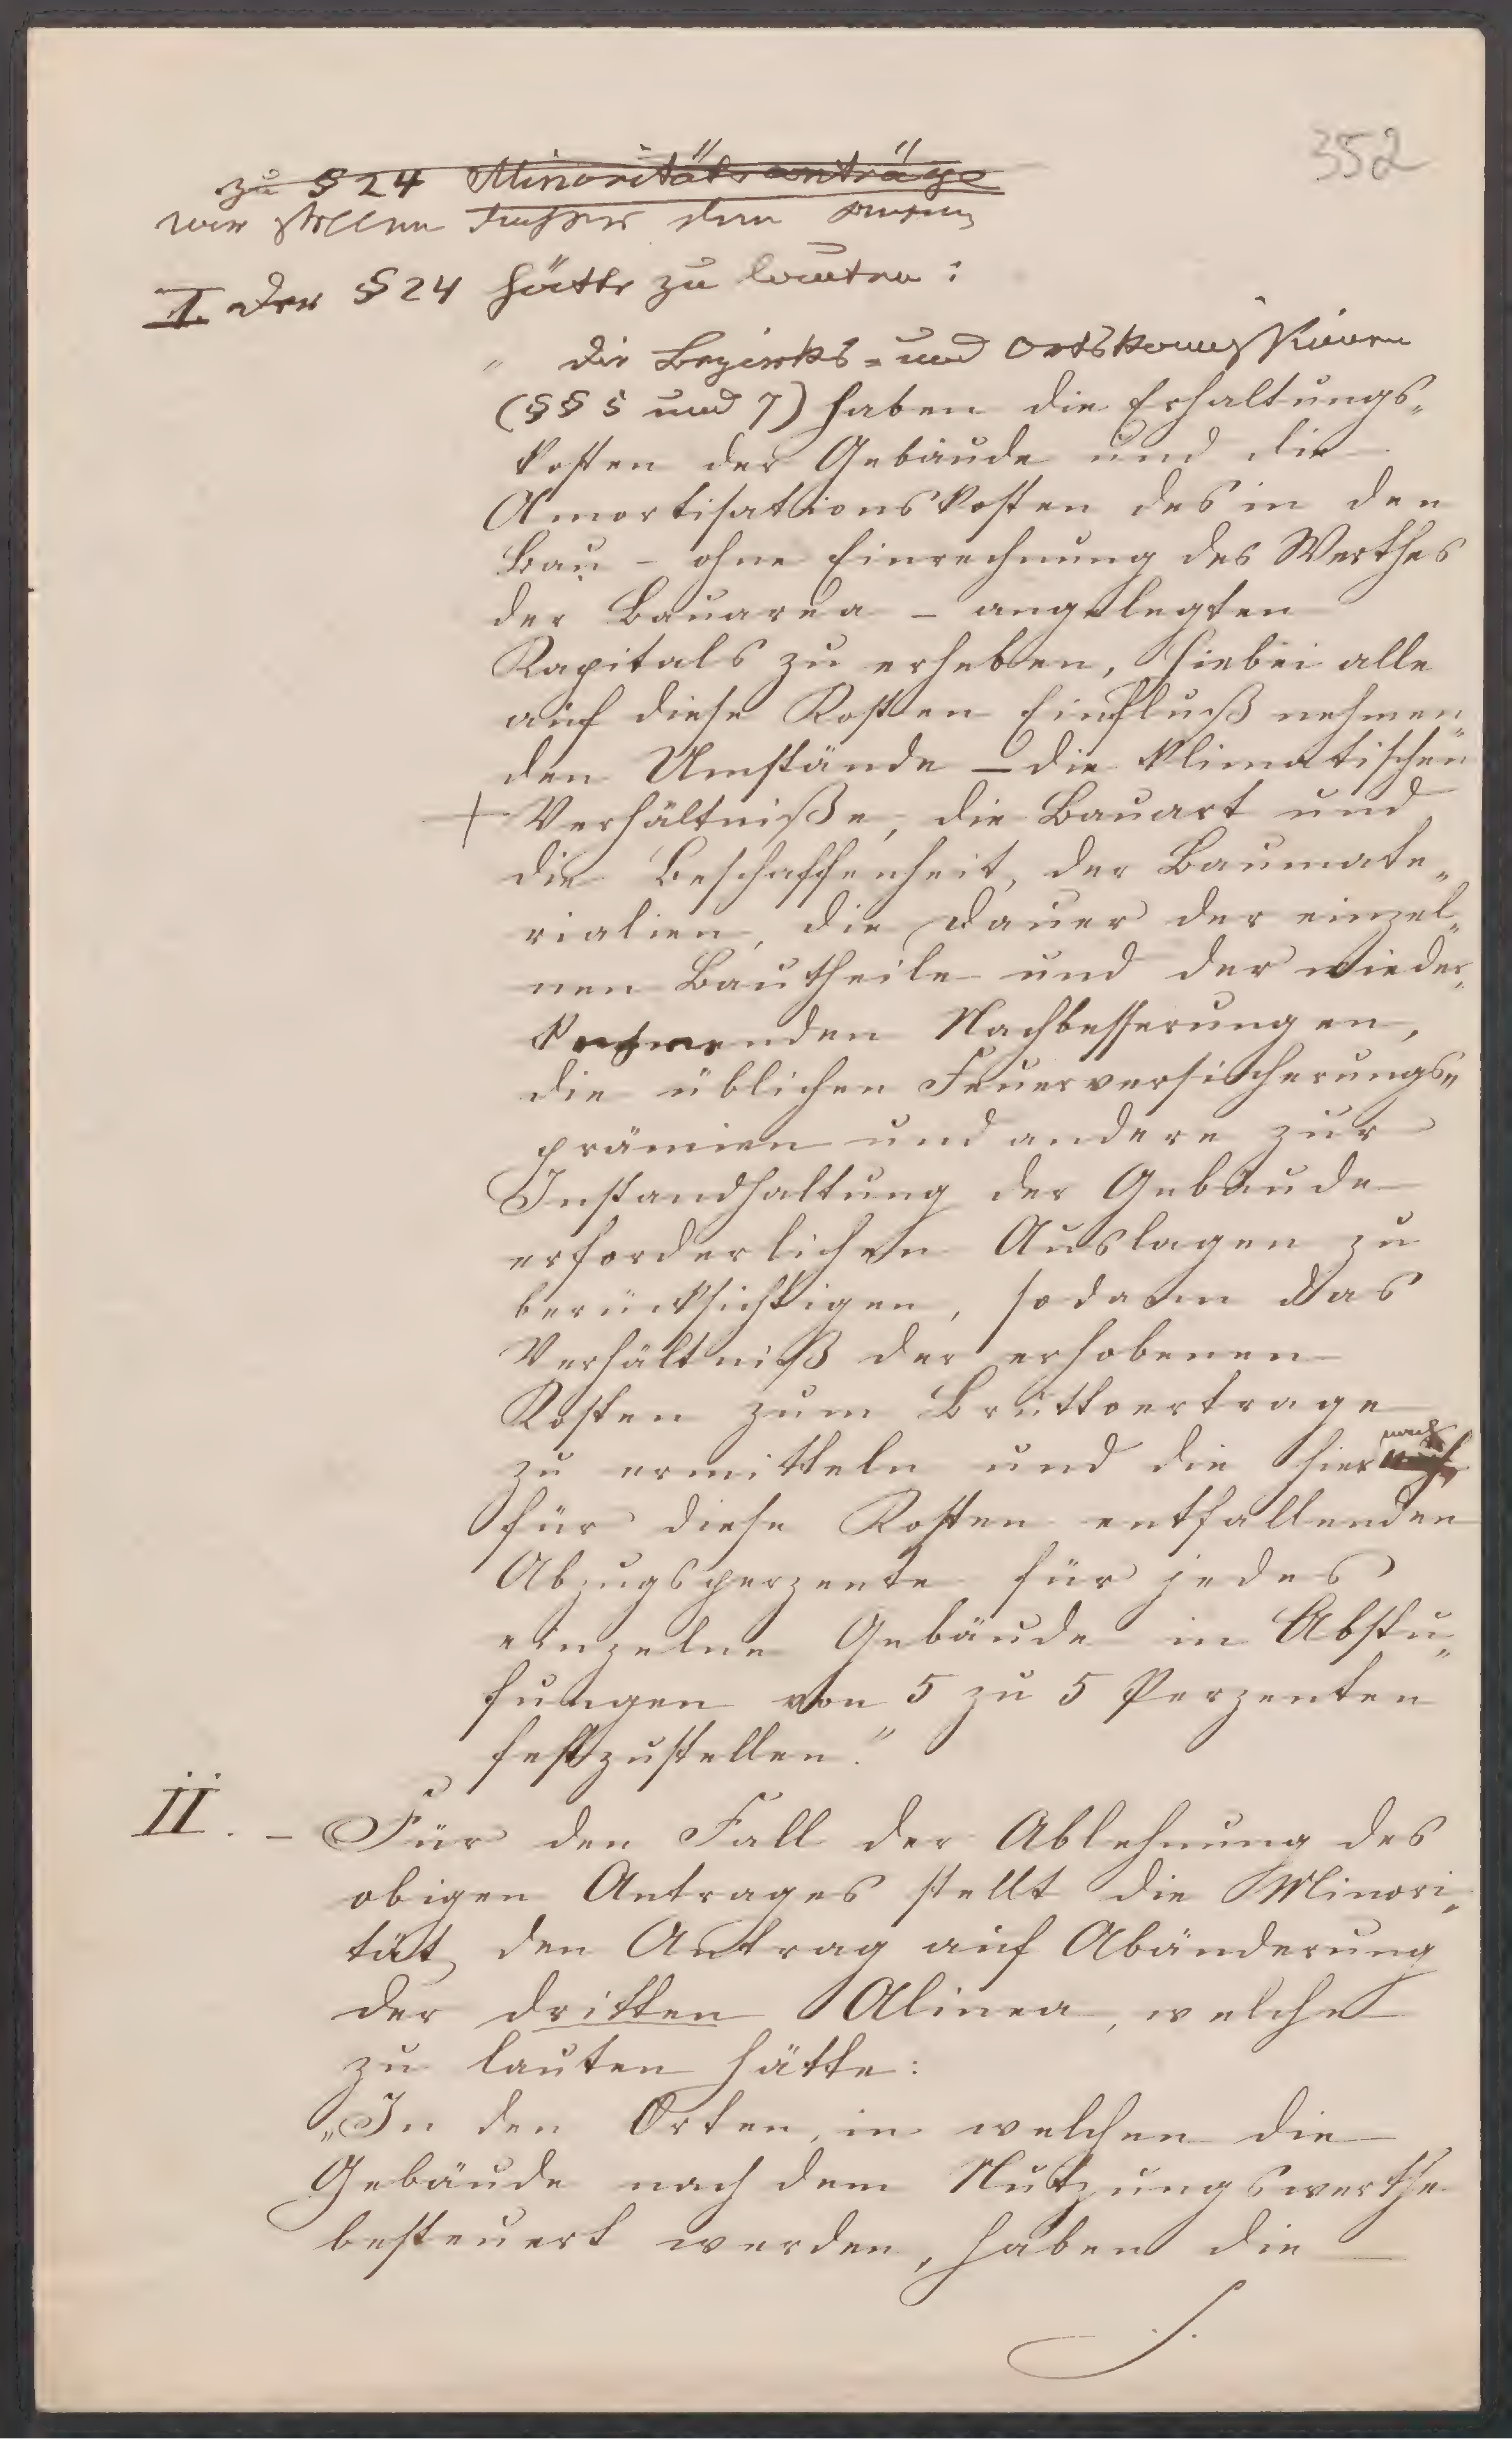 352
zu § 24 Minoritätsanträge
wir stellen daher den
I. Der § 24 hätte zu lauten:
" Die Bezirks- und Ortskommissionen
(§§ 5 und 7) haben die Erhaltungs„
kosten der Gebäude und die
Amortisationskosten des in den
Bau – ohne Einrechnung des Werthes
der Bauarea – angelegten
Kapitals zu erheben, hiebei alle
auf diese Kosten Einfluß nehmen„
den Umstände – die klimatischen
Verhältniße, die Bauart und
die Beschaffenheit der Baumate„
rialien, die Dauer der einzel„
nen Bautheile und der wieder„
kehrenden Nachbesserungen,
die üblichen Feuerversicherungs„
prämien und andere zur
Instandhaltung der Gebäude
erforderlichen Auslagen zu
berücksichtigen, sodann das
Verhältniß der erhobenen
Kosten zum Bruttoertrage
zu ermitteln und die hiernach
für diese Kosten entfallenden
Abzugsperzente für jedes
einzelne Gebäude in Abstu„
fungen von 5 zu 5 Perzenten
festzustellen."
II. – Für den Fall der Ablehnung des
obigen Antrages stellt die Minori„
tät den Antrag auf Abänderung
der dritten Alinea, welche
zu lauten hätte:
„In den Orten, in welchen die
Gebäude nach dem Nutzungswerthe
besteuert werden, haben die
./.